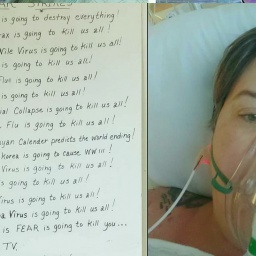 is going to destroy everything!
is going to kill us all!
Nile Virus is going to kill us all!
is going to kill us all!
Flu is going to kill us all!
is going to kill us all!
Collapse is going to kill us all!
Flu is going to kill us all!
Calender predicts the world ending!
Korea is going to cause WW III!
Virus is going to kill us all!
is going to kill us all!
Virus is going to kill us all!
Virus is going to kill us all!
is FEAR is going to kill you...
TV.